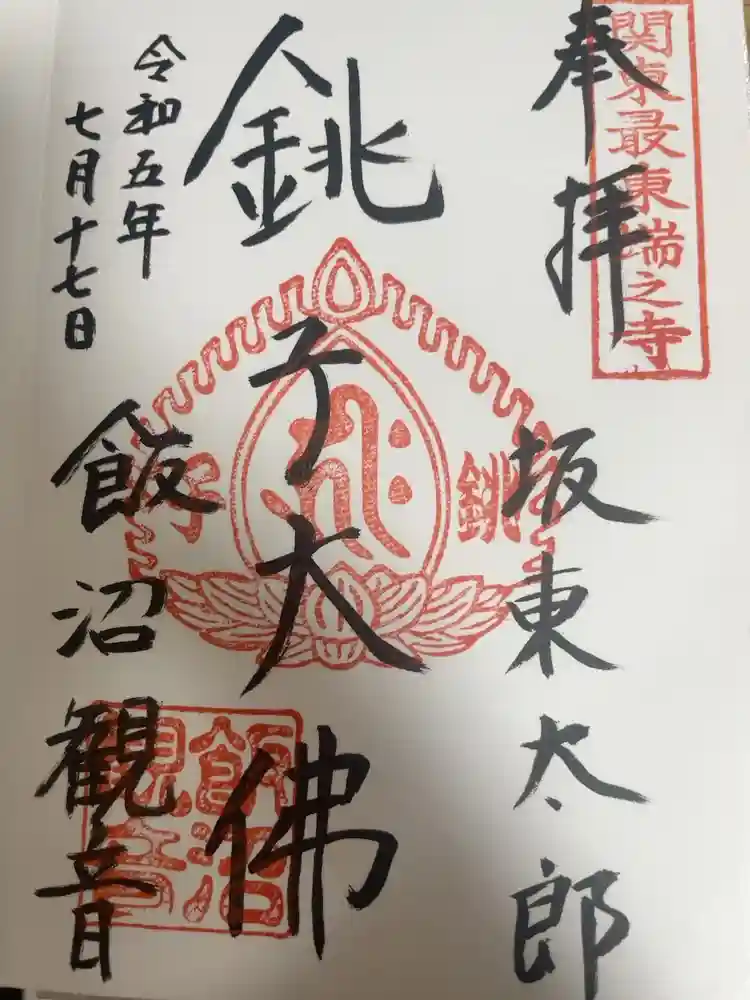 奉拝
関東最東端之寺
坂東太郎
銚子大佛
銚子
令和五年
七月十七日
飯沼観音
飯沼
観音